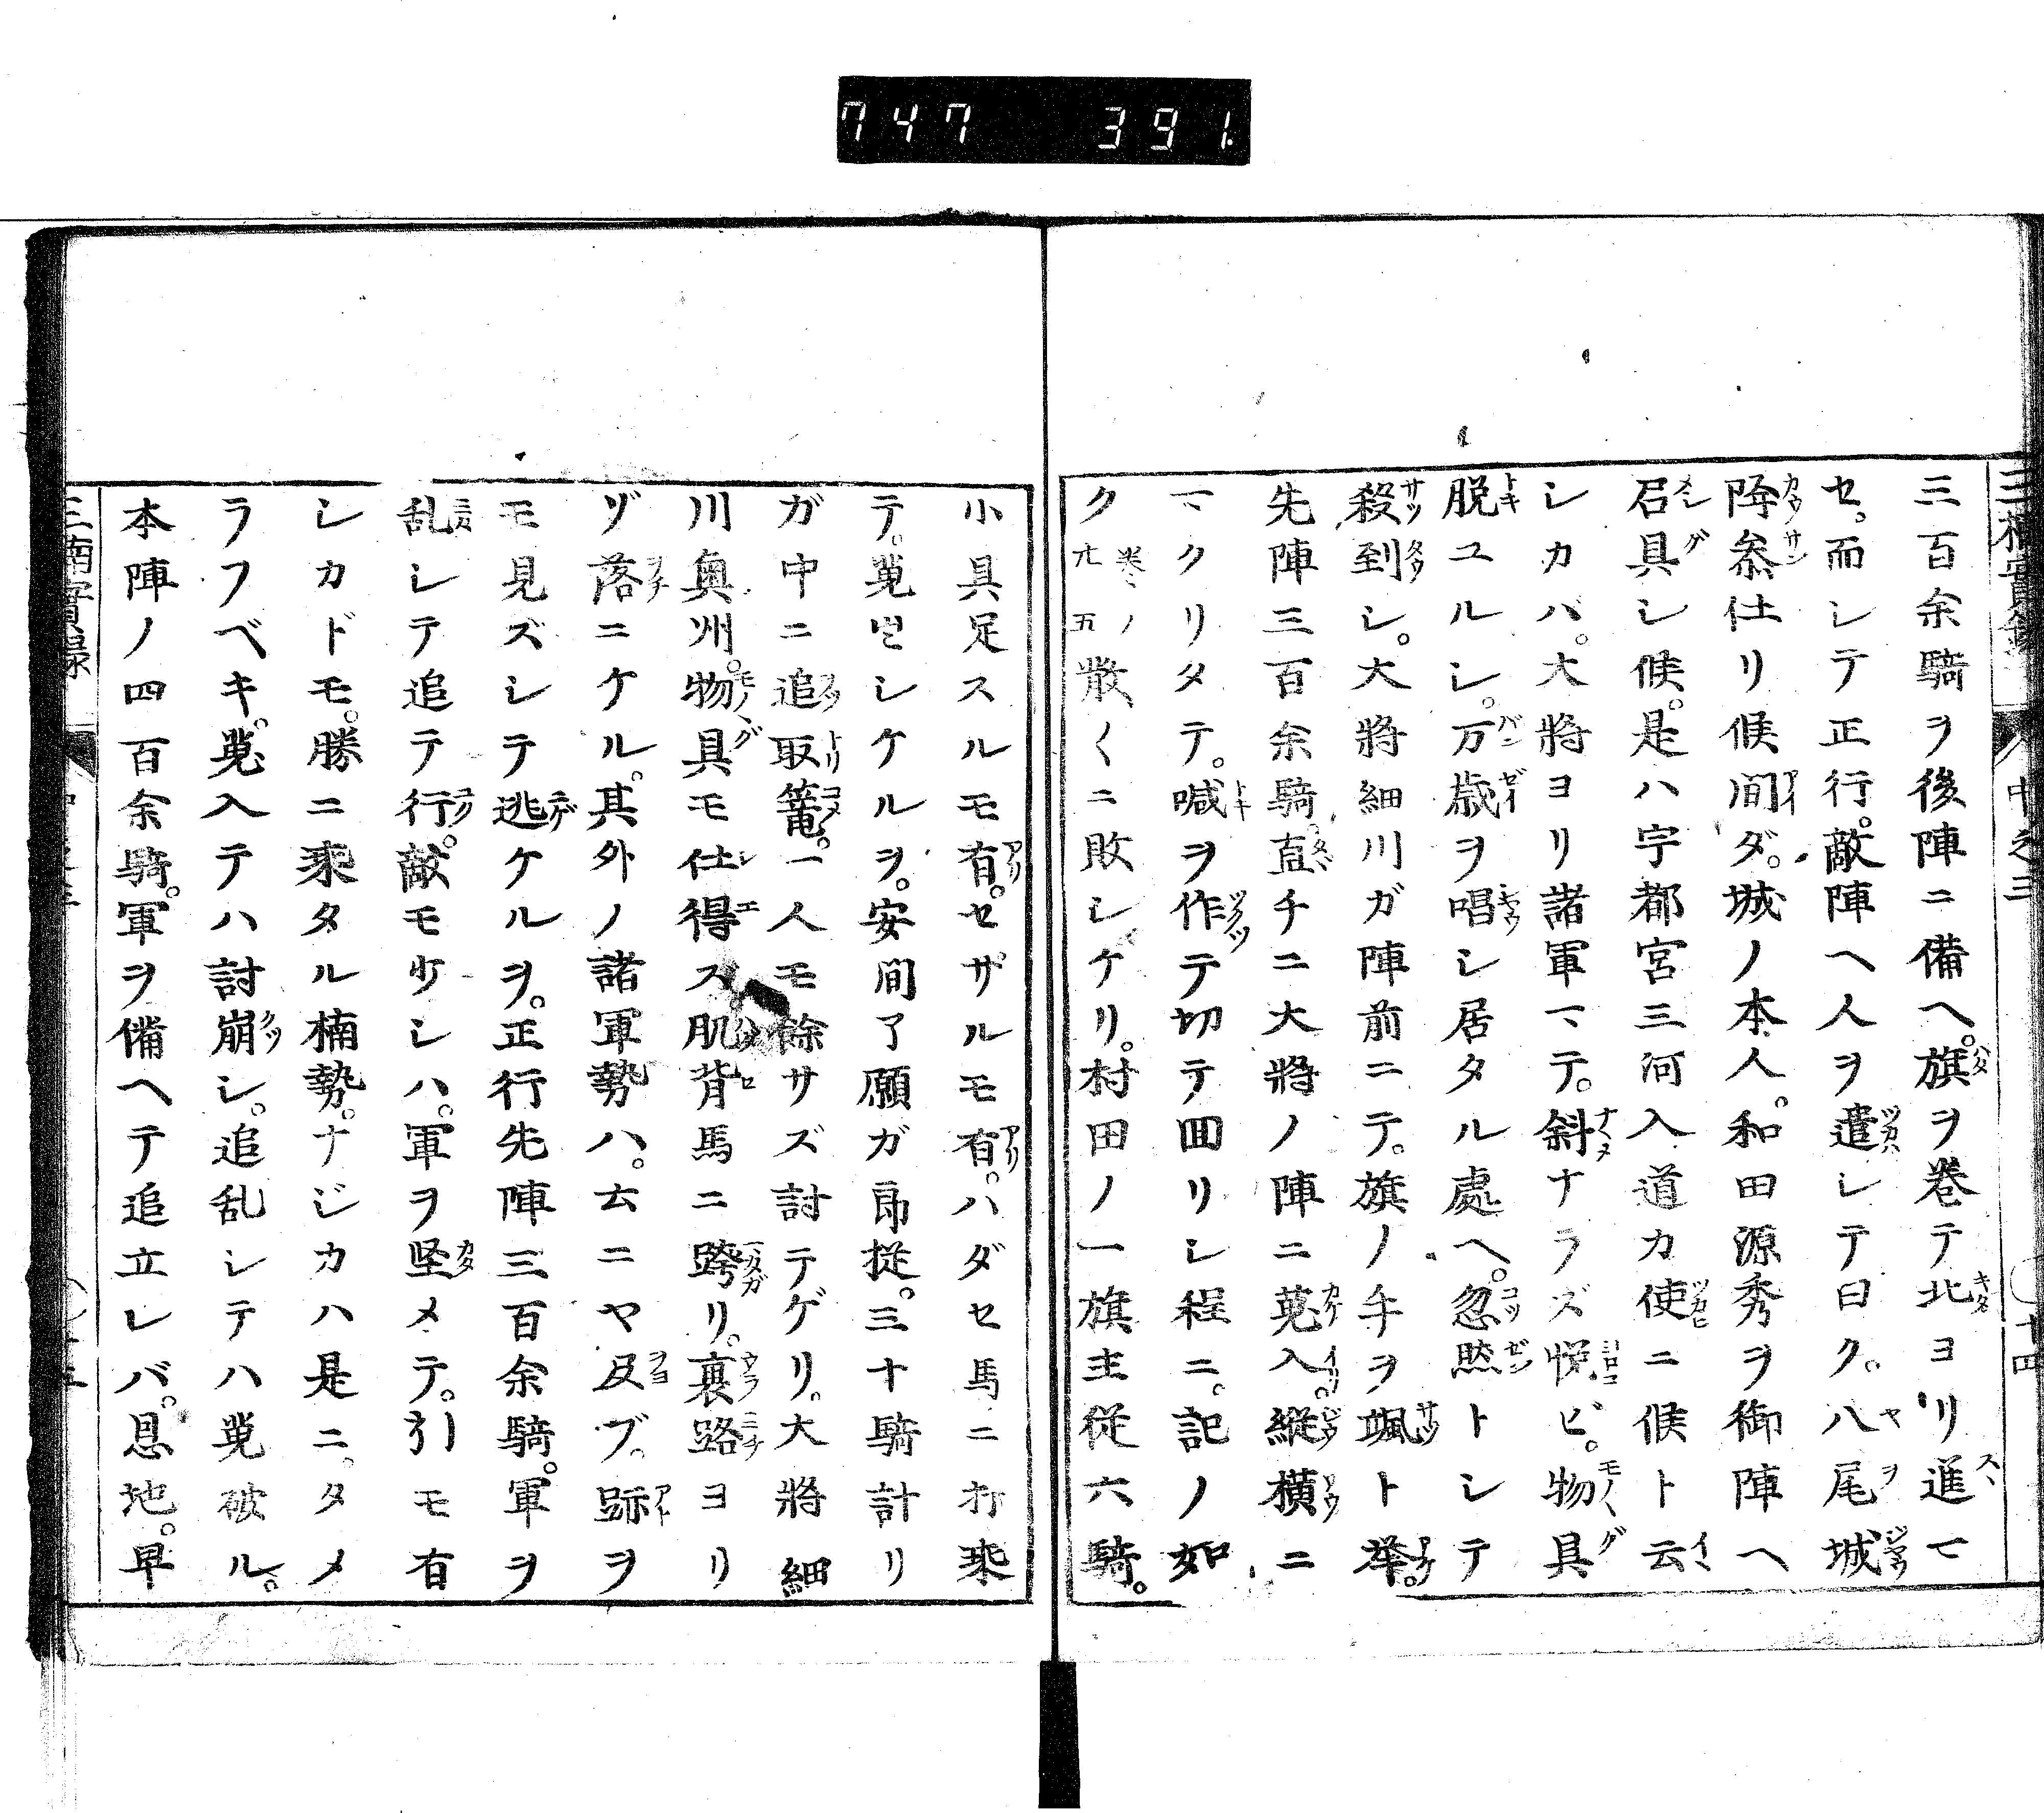 747 391
三楠實録 中之三 十四
三百余騎ヲ後陣ニ備ヘ。旗ヲ巻テ北ヨリ進マ
セ。而シテ正行。敵陣ヘ人ヲ遣シテ曰ク。八尾城
降叅仕リ候間ダ。城ノ本人。和田源秀ヲ御陣ヘ
召具シ候。是ハ宇都宮三河入道カ使ニ候ト云
シカバ。大将ヨリ諸軍マテ。斜ナラズ悦ビ。物具
脱ユルシ。万歳ヲ唱シ居タル處ヘ。忽然トシテ
殺到シ。大将細川ガ陣前ニテ。旗ノ手ヲ颯ト挙。
先陣三百余騎直チニ大将ノ陣ニ蒐入。縦横ニ
マクリタテ。喊ヲ作テ切テ囬リシ程ニ。記ノ如
ク巻ノ廿五散〱ニ敗シケリ。村田ノ一旗主従六騎。
小具足スルモ有。セザルモ有。ハダセ馬ニ打乗
テ。蒐出シケルヲ。安間了願ガ郎従。三十騎計リ
ガ中ニ追取篭。一人モ餘サズ討テゲリ。大将細
川奥州。物具モ仕得ズ。肌背馬ニ跨リ。裏路ヨリ
ゾ落ニケル。其外ノ諸軍勢ハ。云ニヤ及ブ。跡ヲ
モ見ズシテ逃ケルヲ。正行先陣三百余騎。軍ヲ
乱シテ追テ行。敵モ少シハ。軍ヲ堅メテ。引モ有
シカドモ。勝ニ乗タル楠勢。ナジカハ是ニ。タメ
ラフベキ。蒐入テハ討崩シ。追乱シテハ蒐破ル。
本陣ノ四百余騎。軍ヲ備ヘテ追立レバ。恩地。早
三楠實録